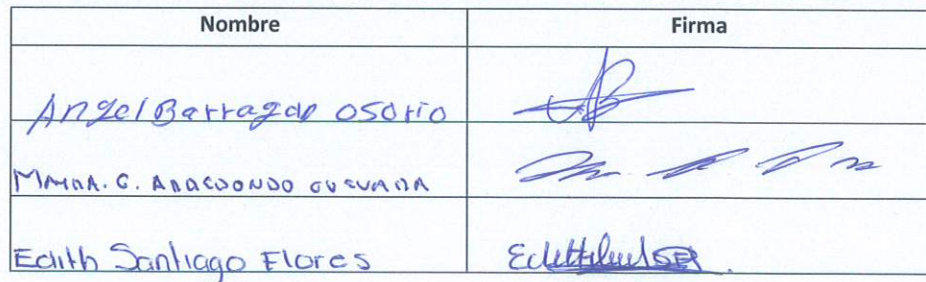 Nombre Firma
Angel Barragan Osorio
MAYRA. G. ARREDONDO GUEVARA
Edith Santiago Flores